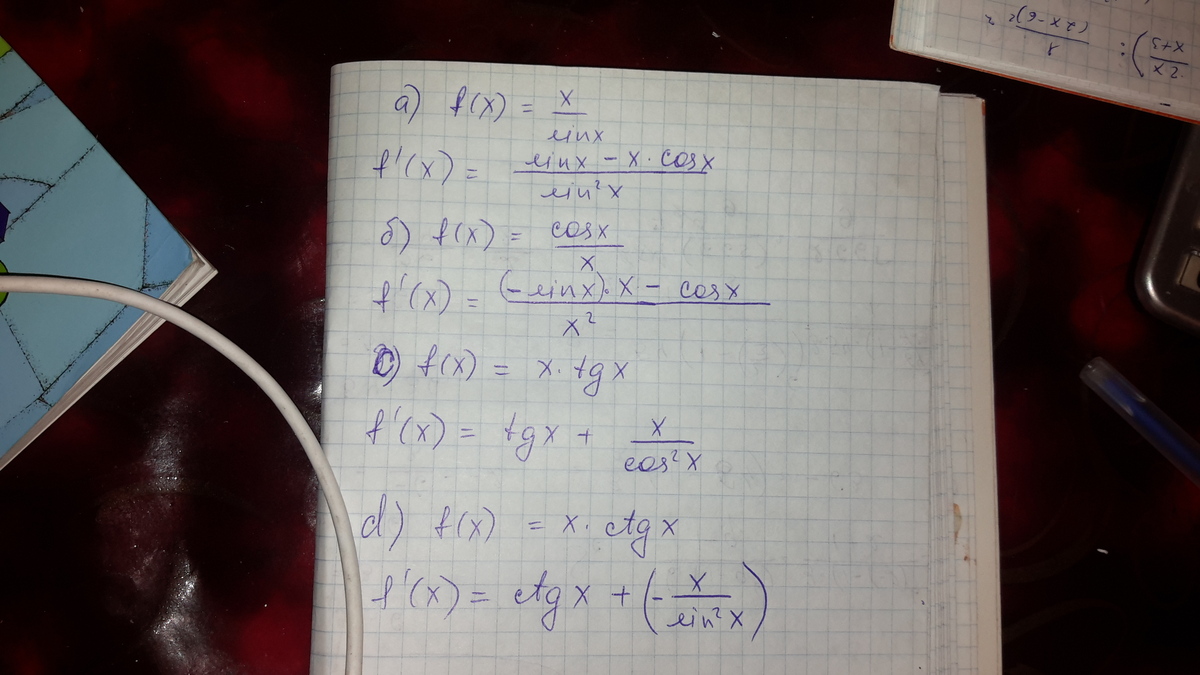 а) f(x) = x/sinx
f'(x) = (sinx - x · cosx)/sin²x
б) f(x) = cosx/x
f'(x) = ((-sinx) · x - cosx)/x²
c) f(x) = x · tgx
f'(x) = tgx + x/cos²x
d) f(x) = x · ctgx
f'(x) = ctgx + (-x/sin²x)